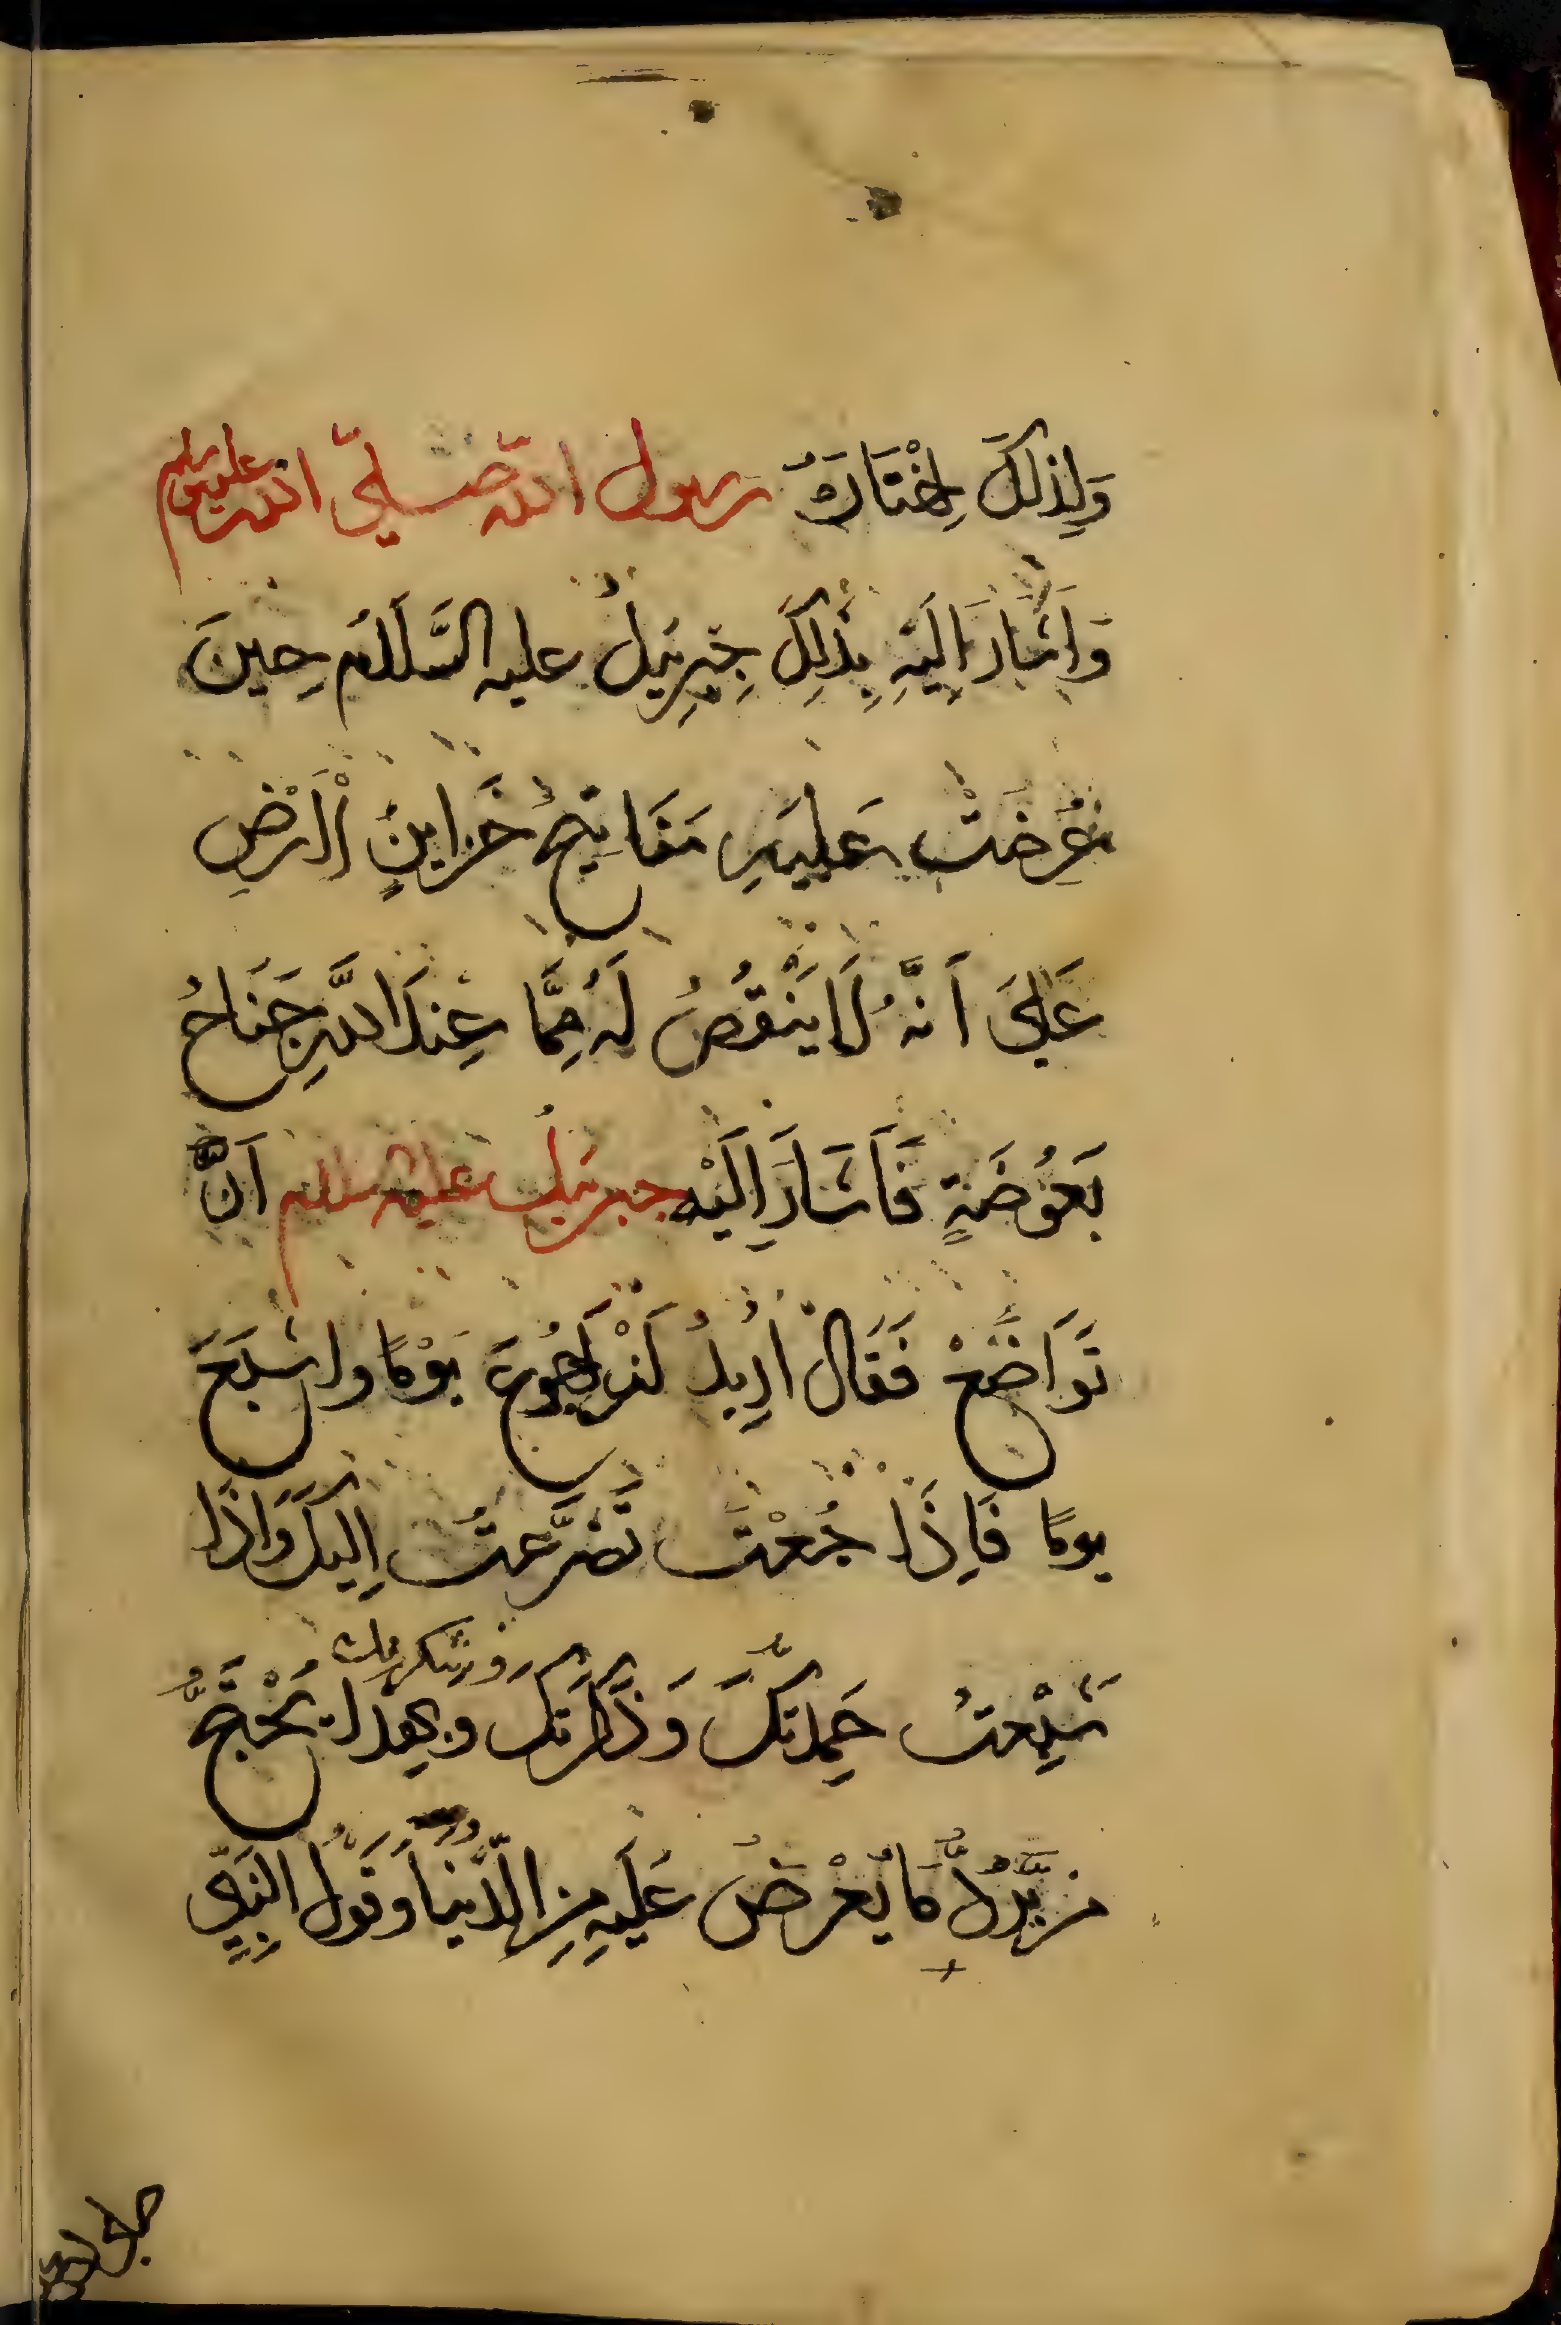 وَلِذلِكَ اِخْتَارَهُ رسول الله صلى الله عليه وسلم
وَاَشَارَ اِلَيْهِ بِذٰلِكَ جِبْرِيَيلُ عليه السَّلَامُ حِينَ
عُرِضَتْ عَلَيْهِ مَفَاتِيحُ خَزَايِنِ الْاَرْضِ
عَلىَ اَنَّهُ لَا يَنْقُصُ لَهُ مِمَّا عِنْدَ اللَّهِ جَنَاحُ
بَعُوْضَةٍ فَاَشَارَ اِلَيْهِ جبرييل عليه السلام اَنْ
تَوَاضَعْ فَقَالَ اُرِيدُ اَنْ اَجُوعَ يَوْمًا واَشْبَعَ
يومًا فَاِذَا جُعْتُ تَضَرَّعتُ اِليكَ وَاِذَا
شَبِعتُ حَمِدتكَ وَذَكَرتكَ وشكرتك وبهذا يَحْتَجُّ
من يَرُدُّ مَا يُعْرَضُ عَلَيهِ مِن الدّنيا وقَولُ النَبِيِّ